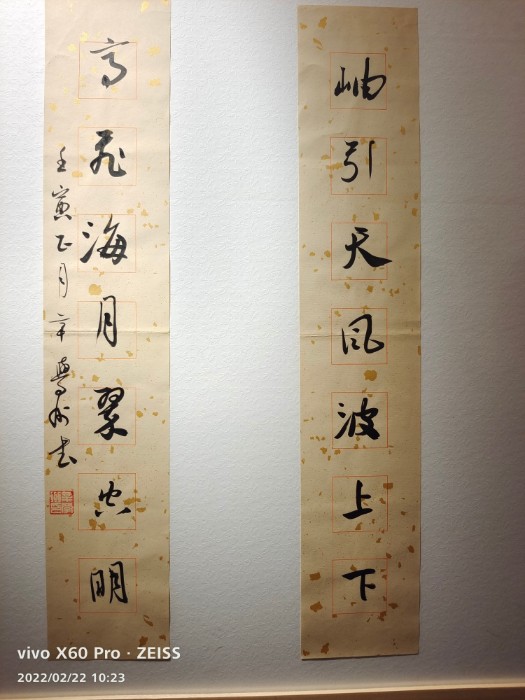 岫引天风波上下
飛海月翠空明
壬寅正月辛书
vivo X60 Pro · ZEISS
2022/02/22 10:23